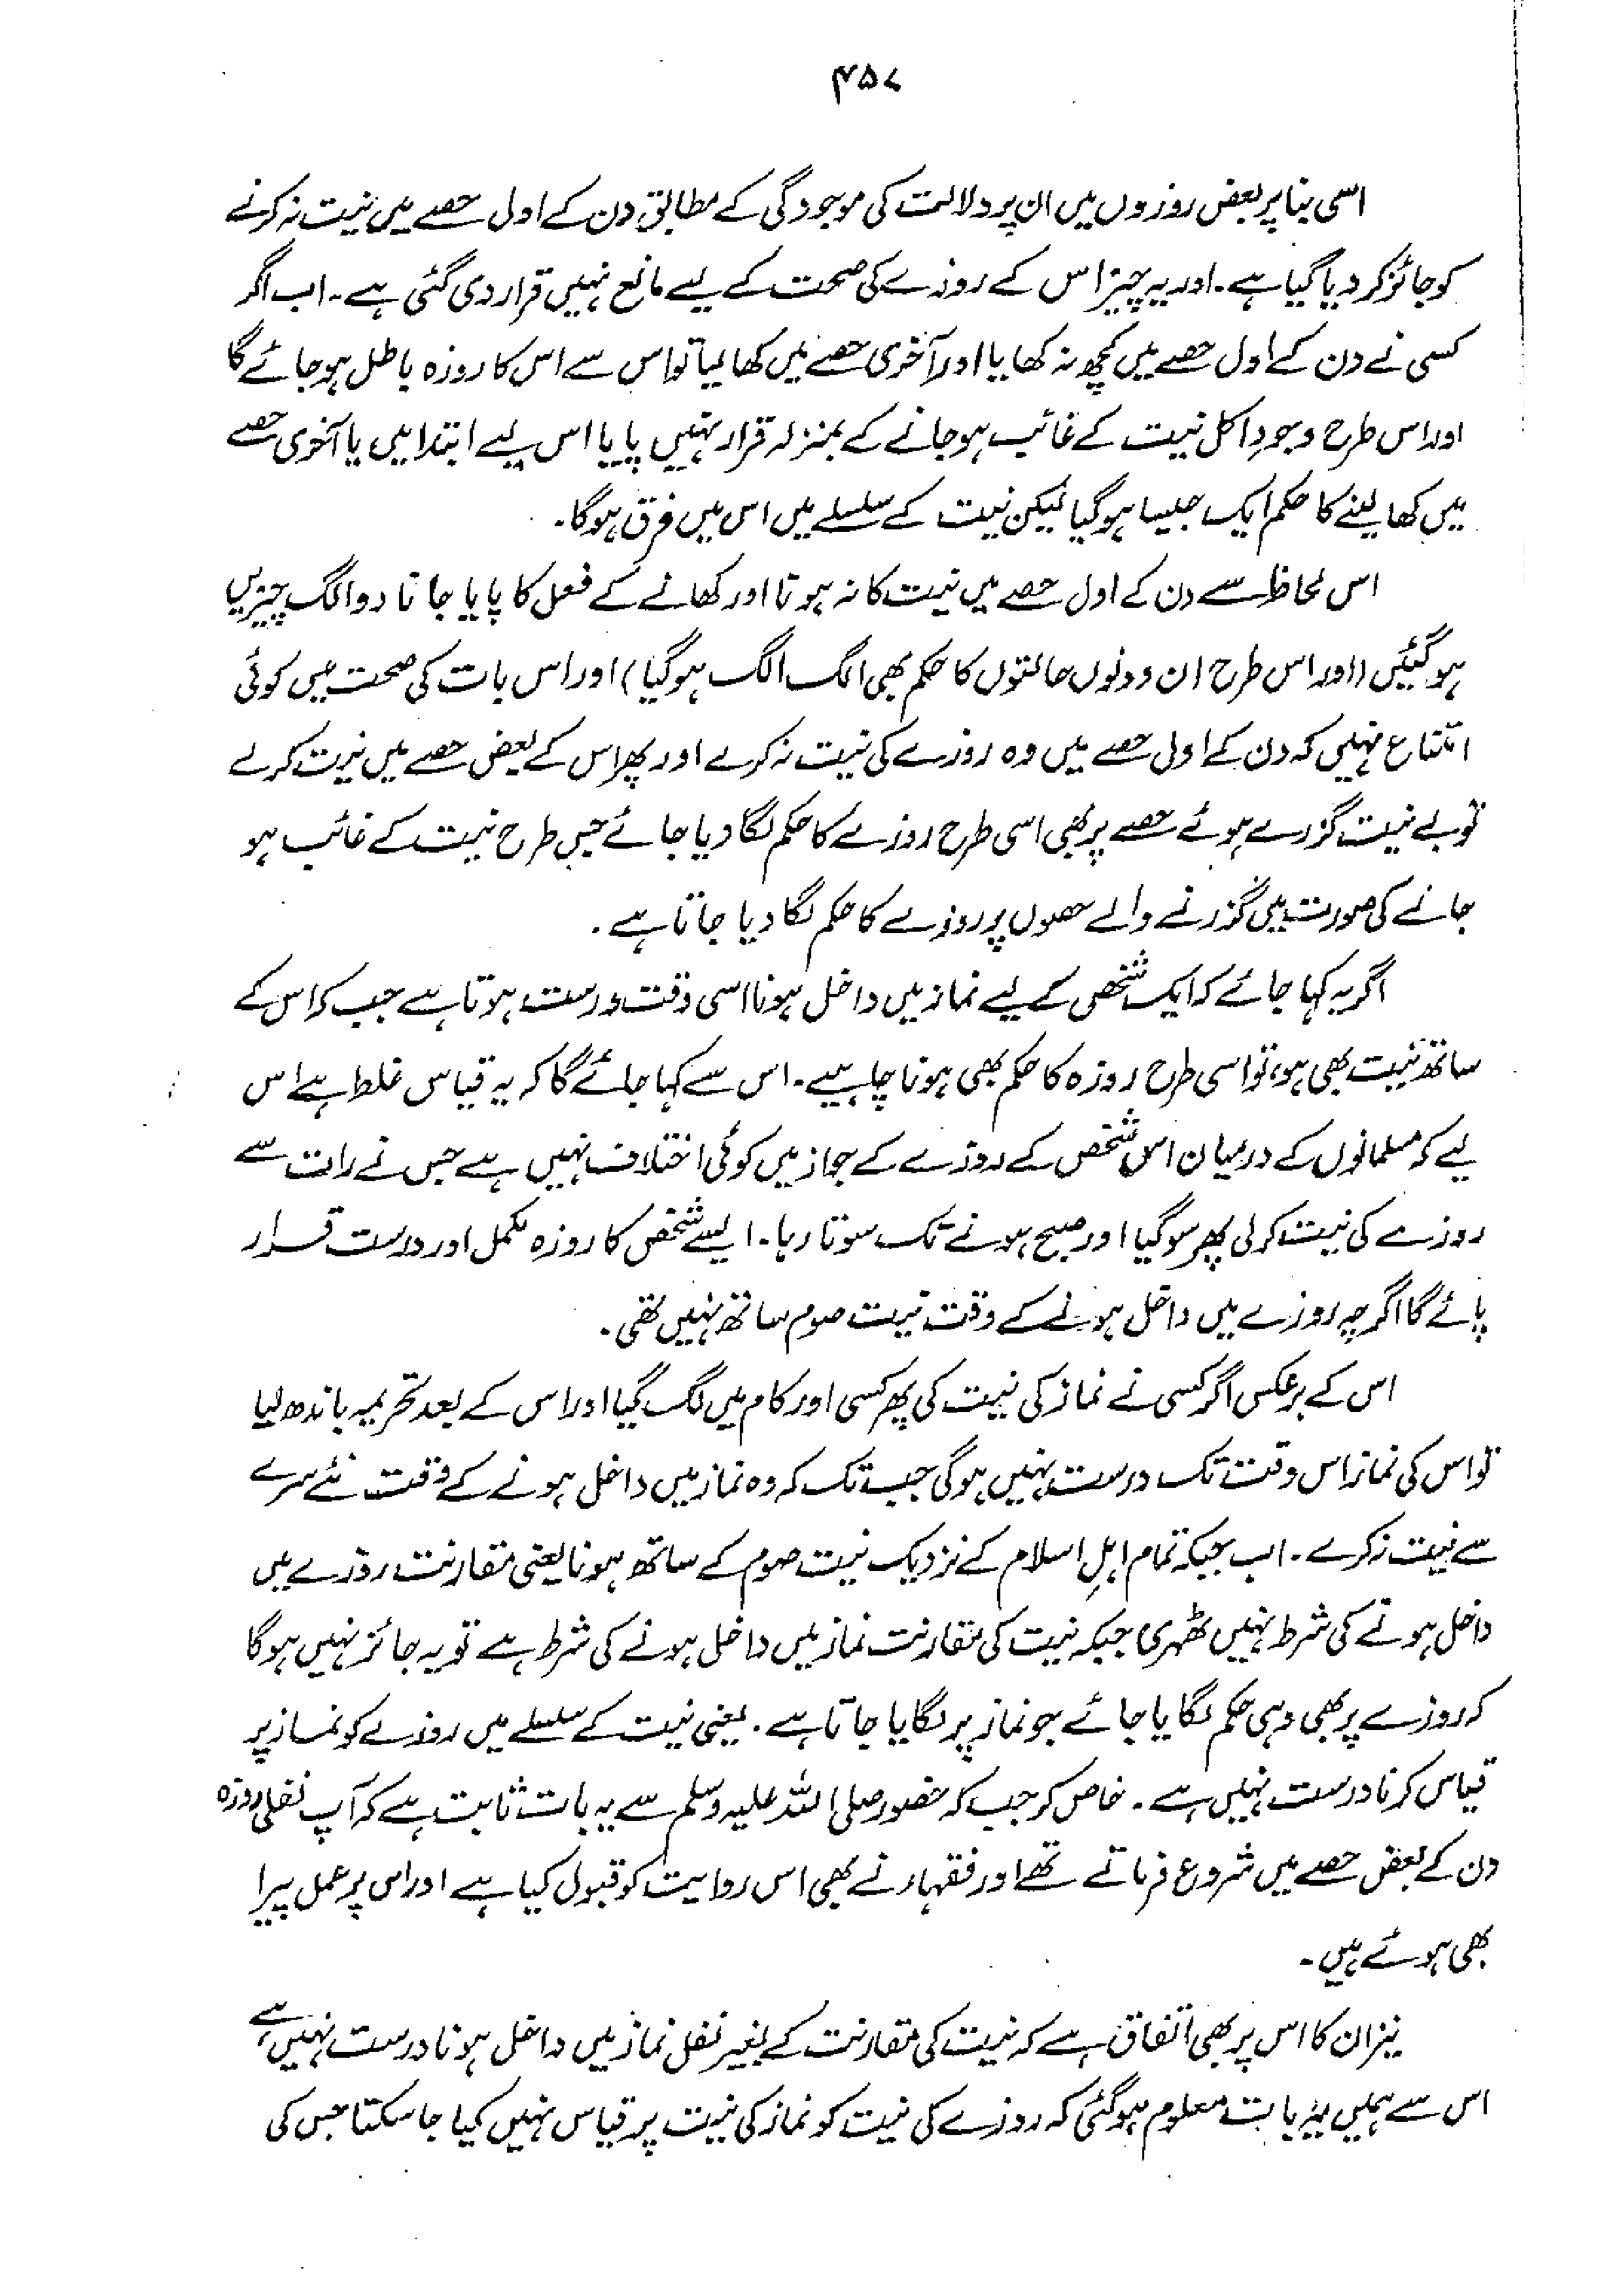 ۴۵۷
اسی بنا پر بعض روزوں میں ان پر دلالت کی موجودگی کے مطابق دن کے اول حصے میں نیت نہ کرنے
کو جائز کر دیا گیا ہے۔ اور یہ چیز اس کے روزے کی صحت کے لیے مانع نہیں قرار دی گئی ہے۔ اب اگر
کسی نے دن کے اول حصے میں کچھ نہ کھایا اور آخری حصے میں کھا لیا تو اس سے اس کا روزہ باطل ہو جائے گا
اور اس طرح وجودِ اکل نیت کے غائب ہو جانے کے بمنزلہ قرار نہیں پایا اس لیے ابتدا میں یا آخری حصے
میں کھا لینے کا حکم ایک جیسا ہو گیا لیکن نیت کے سلسلے میں اس میں فرق ہو گا۔
اس لحاظ سے دن کے اول حصے میں نیت کا نہ ہونا اور کھانے کے فعل کا پایا جانا دو الگ چیزیں
ہو گئیں (اور اس طرح ان دونوں حالتوں کا حکم بھی الگ الگ ہو گیا) اور اس بات کی صحت میں کوئی
امتناع نہیں کہ دن کے اول حصے میں وہ روزے کی نیت نہ کرے اور پھر اس کے بعض حصے میں نیت کر لے
تو بے نیت گزرے ہوئے حصے پر بھی اسی طرح روزے کا حکم لگا دیا جائے جس طرح نیت کے غائب ہو
جانے کی صورت میں گزرنے والے حصوں پر روزے کا حکم لگا دیا جاتا ہے۔
اگر یہ کہا جائے کہ ایک شخص کے لیے نماز میں داخل ہونا اسی وقت درست ہوتا ہے جب کہ اس کے
ساتھ نیت بھی ہو، تو اسی طرح روزہ کا حکم بھی ہونا چاہیے۔ اس سے کہا جائے گا کہ یہ قیاس غلط ہے اس
لیے کہ مسلمانوں کے درمیان اس شخص کے روزے کے جواز میں کوئی اختلاف نہیں ہے جس نے رات سے
روزے کی نیت کر لی پھر سو گیا اور صبح ہونے تک سوتا رہا۔ ایسے شخص کا روزہ مکمل اور درست قرار
پائے گا اگرچہ روزے میں داخل ہونے کے وقت نیت صوم ساتھ نہیں تھی۔
اس کے برعکس اگر کسی نے نماز کی نیت کی پھر کسی اور کام میں لگ گیا اور اس کے بعد تحریمہ باندھ لیا
تو اس کی نماز اس وقت تک درست نہیں ہو گی جب تک کہ وہ نماز میں داخل ہونے کے وقت نئے سرے
سے نیت نہ کرے۔ اب جبکہ تمام اہلِ اسلام کے نزدیک نیت صوم کے ساتھ ہونا یعنی مقارنت روزے میں
داخل ہونے کی شرط نہیں ٹھہری جبکہ نیت کی مقارنت نماز میں داخل ہونے کی شرط ہے تو یہ جائز نہیں ہو گا
کہ روزے پر بھی وہی حکم لگایا جائے جو نماز پر لگایا جاتا ہے۔ یعنی نیت کے سلسلے میں روزے کو نماز پر
قیاس کرنا درست نہیں ہے۔ خاص کر جب کہ حضور صلی اللہ علیہ وسلم سے یہ بات ثابت ہے کہ آپ نفلی روزہ
دن کے بعض حصے میں شروع فرماتے تھے اور فقہاء نے بھی اس روایت کو قبول کیا ہے اور اس پر عمل پیرا
بھی ہوئے ہیں۔
نیز ان کا اس پر بھی اتفاق ہے کہ نیت کی مقارنت کے بغیر نفل نماز میں داخل ہونا درست نہیں ہے،
اس سے ہمیں یہ بات معلوم ہو گئی کہ روزے کی نیت کو نماز کی نیت پر قیاس نہیں کیا جا سکتا جس کی